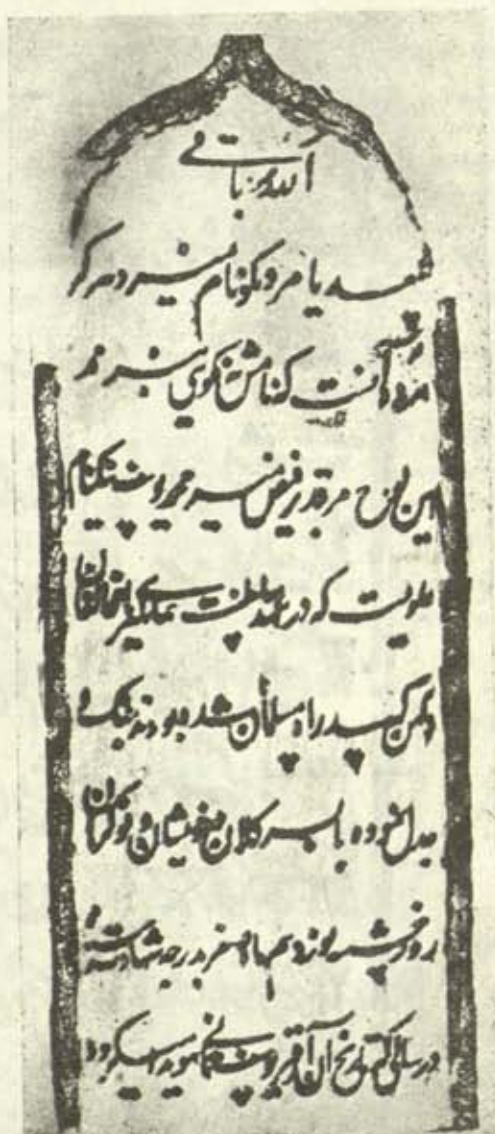 الله باقی
سعدیا مرد نکونام نمیرد هرگز
مرده آنست که نامش نکوی نبرند
این لوح مرقد فیض منیر محمد یوسف نیکنام
علویست که در عهد سلطنت عالمگیر با مخالفان
دکهن که سد راه مسلمان شده بودند بجنگ و
جدل نموده با پسر کلان و خویشان و نوکران
روز نوزدهم ماه صفر بدرجه شهادت
در سالی که تاریخ آن از قبر یوسف ثانی هویدا میگردد